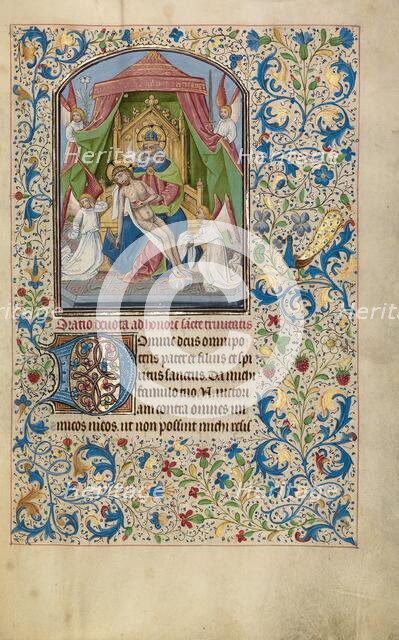 Oratio devota ad honore sācte trinitatis
Domine deus omnipo
tens pater et filius et spi
ritus sanctus. Da michi
famulo tuo. N. victori
am contra omnes ini
micos meos. ut non possint michi resis
Heritage
Heritage
Heritage
Heritage
Heritage